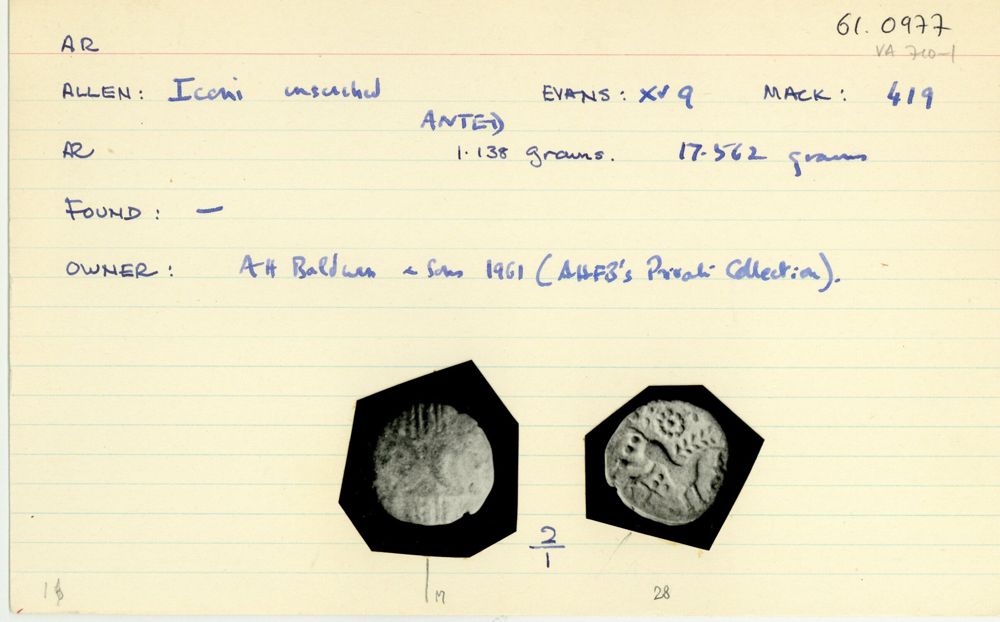 61.0977
AR
VA 710-1
ALLEN: Iceni inscribed EVANS: XV 9 MACK: 419
ANTED
AR 1.138 grams. 17.562 grams
FOUND: —
OWNER: AH Baldwin & Sons 1961 (AHFB's Private Collection).
2
1
M
28